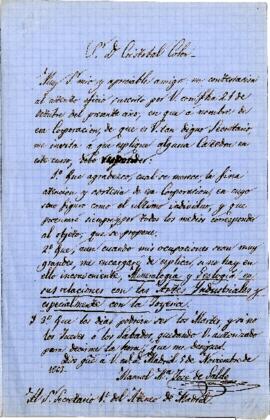 Sr. D. Cristobal Colon
Muy Sr mio y apreciable amigo: en contestacion
al atento oficio suscrito por V. con fha 21 de
Octubre del presente año, en que á nombre de
esa Corporacion, de que es V. tan digno Secretario
me invita á que esplique alguna Catedra en
este curso, debo responder:
1º Que agradezco, cual se merece, la fina
atencion y cortesia de esa Corporacion, en cuyo
seno figuro como el ultimo individuo, y que
procuraré siempre, por todos los medios corresponder
al objeto, que se propone.
2º Que, aun cuando mis ocupaciones sean muy
grandes me encargaré de esplicar, si no hay en
ello inconveniente, Mineralogia y
sus relaciones con las Artes Industriales y
especialmente con la Joyeria.
3º Que los dias podrán ser los Martes, y si no
los Jueves ó los Sabados, quedando V. autorizado
para decirme la hora, que me designe.
Dios gue á V. m. a. Madrid 5 de Noviembre de
Manuel Mª José de Galdo
Sr. Secretario 1º del Ateneo de Madrid